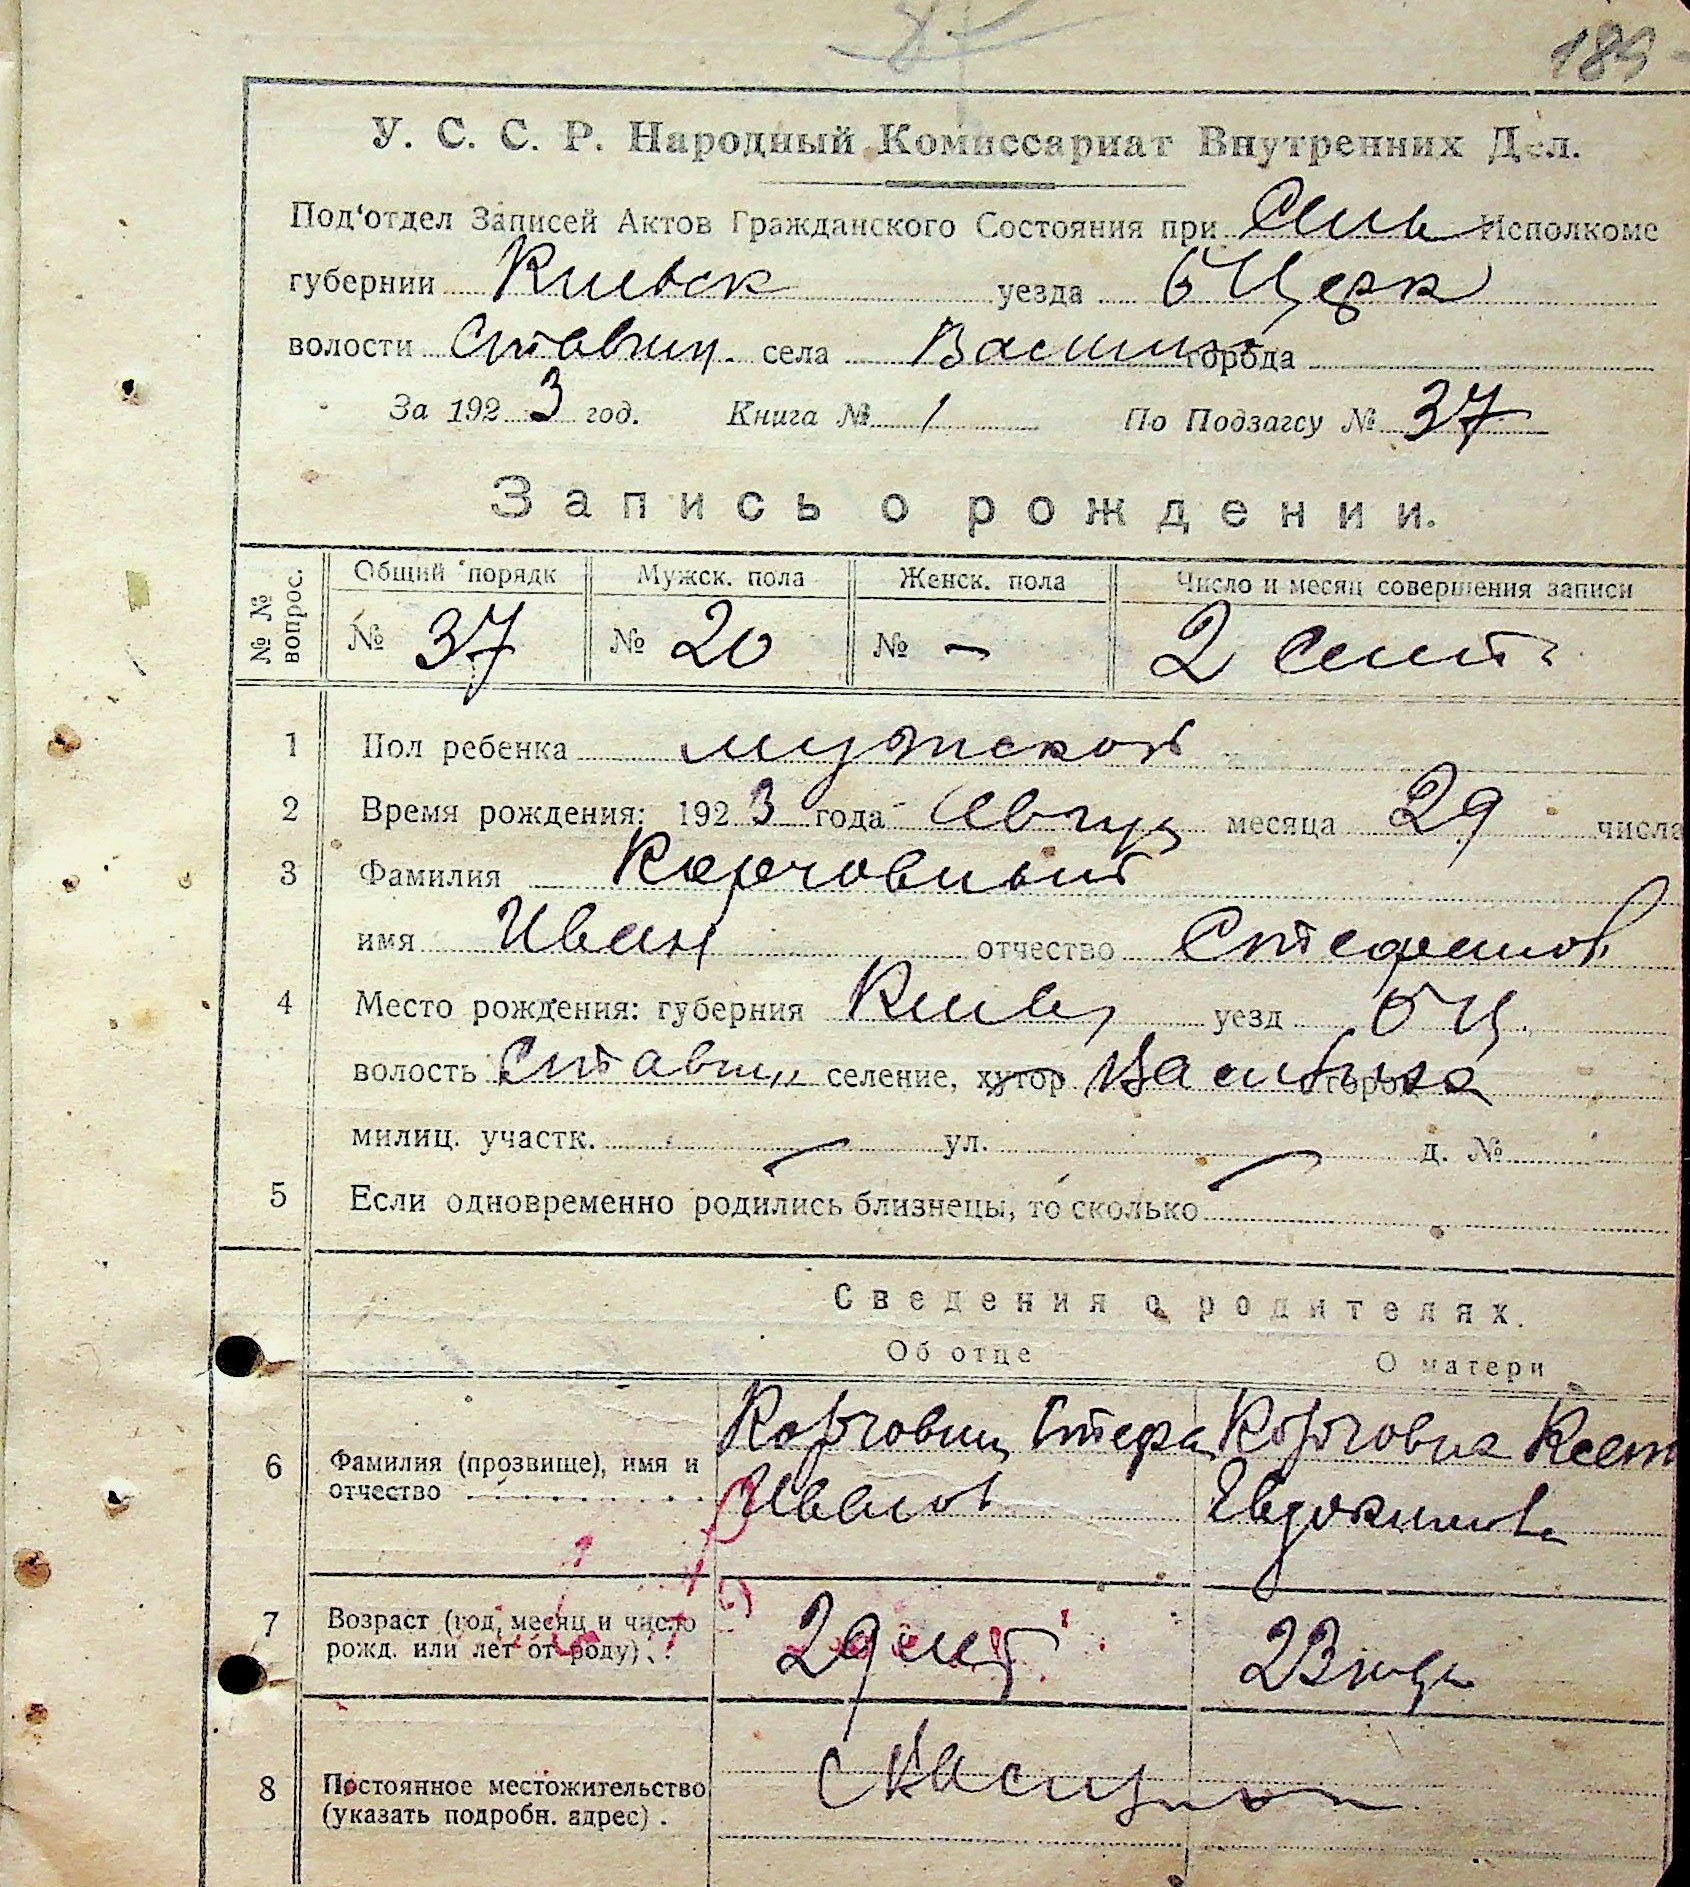 189
У. С. С. Р. Народный Комиссариат Внутренних Дел.
Под'отдел Записей Актов Гражданского Состояния при Сель Исполкоме
губернии Киевск уезда б Церк
волости Ставищ. села Василиха города
За 1923 год. Книга № 1 По Подзагсу № 37
Запись о рождении.
№ № вопрос. Общий порядк Мужск. пола Женск. пола Число и месяц совершения записи
№ 37 № 20 № — 2 Сент
1 Пол ребенка мужской
2 Время рождения: 1923 года Авгус месяца 29 числа
3 Фамилия Корчовный
имя Иван отчество Стефанов
4 Место рождения: губерния Киев уезд БЦ.
волость Ставищ селение, хутор Василиха город
милиц. участк. — ул. — д. №
5 Если одновременно родились близнецы, то сколько
Сведения о родителях.
Об отце О матери
6 Фамилия (прозвище), имя и отчество Корчовний Стефан Иванов Корчовна Ксен Евдокимова
7 Возраст (год, месяц и число рожд. или лет от роду) 29 лет 23 года
8 Постоянное местожительство (указать подробн. адрес) . с